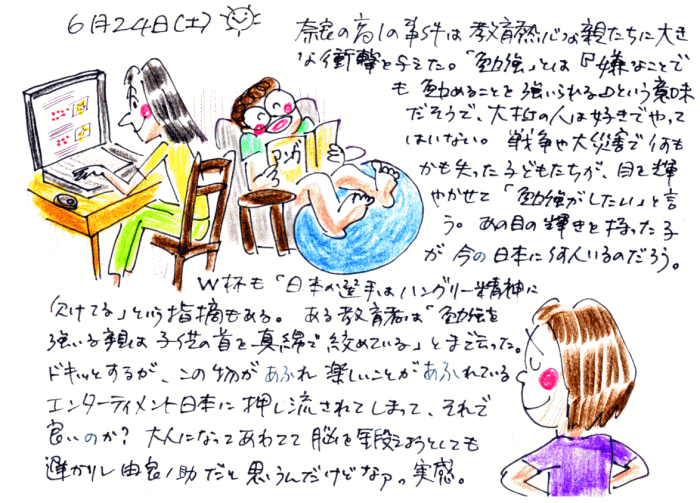 6月24日(土)
奈良の高1の事件は教育熱心な親たちに大き
な衝撃を与えた。「勉強」とは『嫌なことで
も勉めることを強いられる』という意味
だそうで、大抵の人は好きでやって
はいない。戦争や大災害で何も
かも失った子どもたちが、目を輝
やかせて「勉強がしたい」と言
う。あの目の輝きを持った子
が今の日本に何人いるのだろう。
マンガ
W杯も「日本の選手はハングリー精神に
欠けてる」という指摘もある。ある教育者は「勉強を
強いる親は子供の首を真綿で絞めている」とまで云った。
ドキッとするが、この物があふれ楽しいことがあふれている
エンターティメント日本に押し流されてしまって、それで
良いのか？大人になってあわてて脳を鍛えようとしても
遅かりし由良ノ助だと思うんだけどなァ。実感。